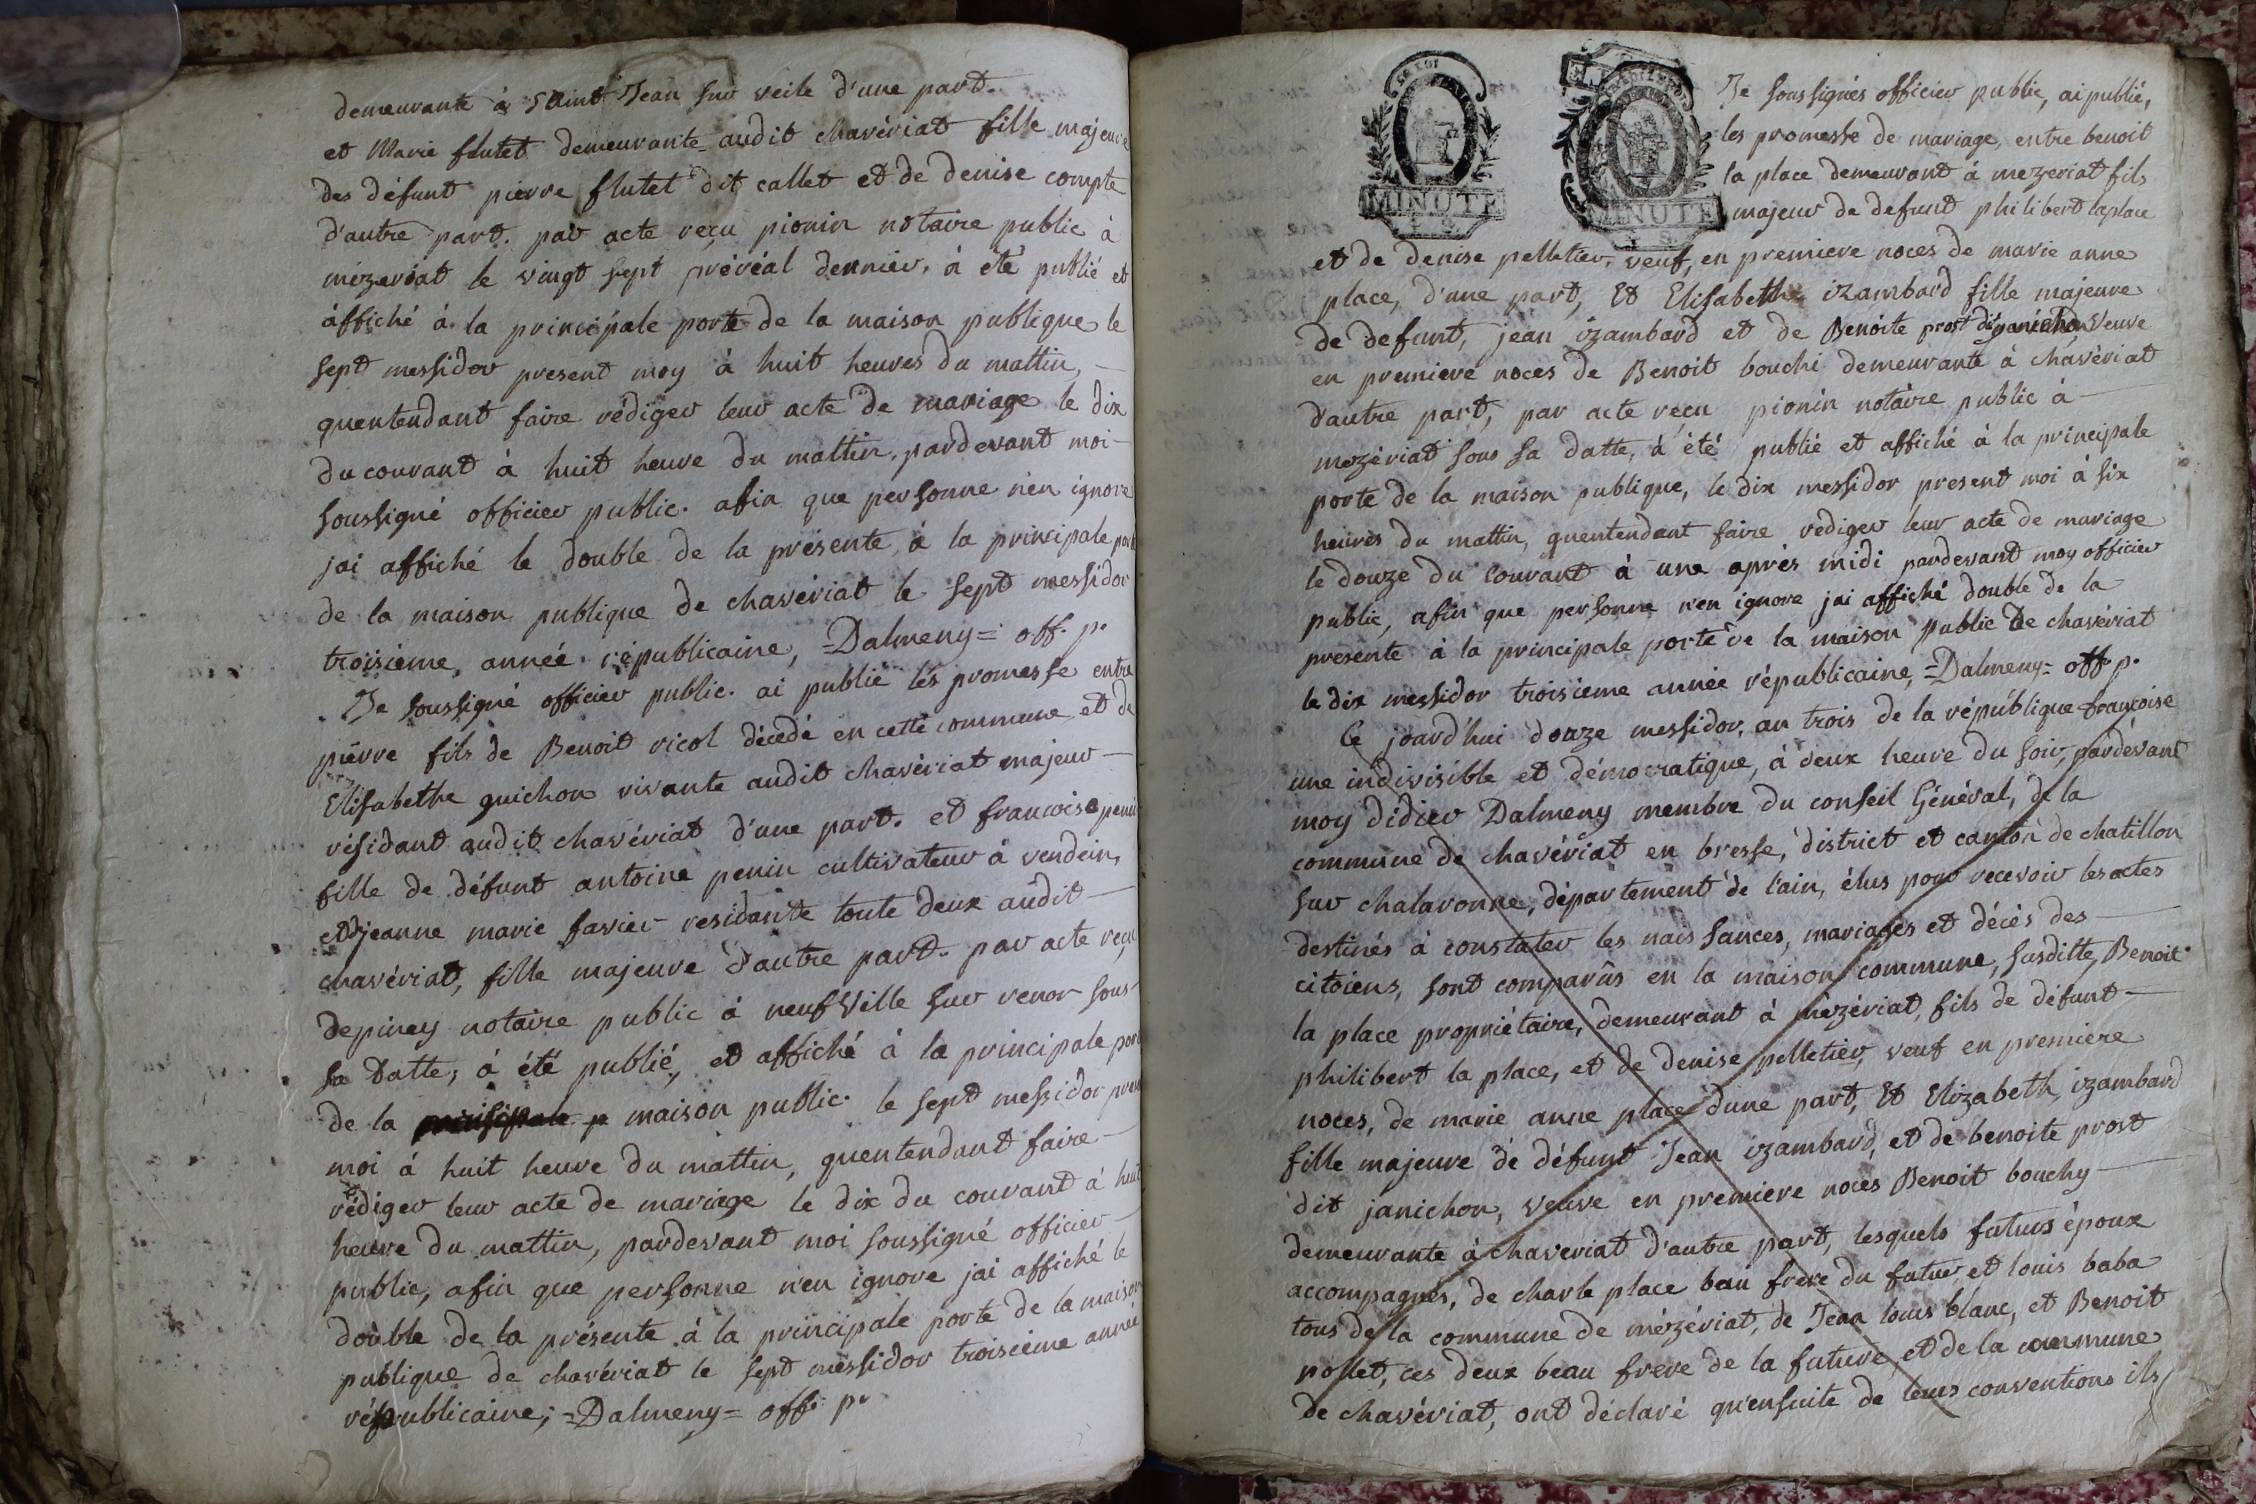 demeurante à Saint Jean sur veile d'une part.
et Marie flutet demeurante audit chavériat fille majeure
des défunt pierre flutet dit callet et de denise compte
d'autre part. par acte reçu pionin notaire public à
mézeriat le vingt sept prévéal dernier, à été publié et
áffiché à la principale porte de la maison publique le
sept messidor present moy à huit heures du mattin, —
quentendant faire rédiger leur acte de mariage le dix
du courant à huit heure du mattin, pardevant moi —
soussigné officier public. afin que personne n'en ignore
jai affiché le double de la présente, à la principale porte
de la maison publique de chavériat le sept messidor
troisieme, année républicaine, =Dalmeny= off. p.
Je soussigné officier public. ai publié les promesse entre
pierre fils de Benoit ricol décedé en cette commune et de
Elisabethe guichon vivante audit chavériat majeur —
résidant audit chavériat d'une part. et francoise penin
fille de défunt antoine penin cultivateur à vendein,
et jeanne marie favier residante toute deux audit —
chavériat, fille majeure d'autre part. par acte reçu
depiney notaire public à neufville sur renon sous
sa Datte, á été publié, et affiché à la principale porte
de la maison public. le sept messidor present
moi à huit heure du mattin, quentendant faire —
rédiger leur acte de mariage le dix du courant à huit
heure du mattin, pardevant moi soussigné officier —
public, afin que personne n'en ignore jai affiché le
double de la présente à la principale porte de la maison
publique de chavériat le sept messidor troisieme année
républicaine; =Dalmeny= off. p.
LA LOI
MINUTE
MINUTE
Je soussignés officier public, ai publié,
les promesse de mariage, entre benoit
la place demeurant à mezeriat fils
majeur de defunt philibert laplace
et de denise pelletier, veuf, en premiere noces de marie anne
place, d'une part, Et Elisabethe izambard fille majeure
de defunt, jean izambard et de Benoite prost dit janichon, veuve
en premiere noces de Benoit bouchi demeurante à chavériat
d'autre part, par acte reçu pionin notaire public à —
mezériat sous sa datte, à été publié et affiché à la principale
porte de la maison publique, le dix messidor present moi à six
heures du mattin, quentendant faire rediger leur acte de mariage
le douze du courant à une aprés midi pardevant moy officier
public, afin que personne n'en ignore jai affiché double de la
presente à la principale porte de la maison public de chavériat
le dix messidor troisieme année républicaine, =Dalmeny= off. p.
Ce jourd'hui douze messidor, an trois de la république francoise
une indivisible et démocratique, à deux heure du soir, pardevant
moy didier Dalmeny membre du conseil Général, de la
commune de chavériat en bresse, district et canton de chatillon
sur chalaronne, département de l'ain, élus pour recevoir les actes
destinés à constater les naissances, mariages et décès des —
citoiens, sont comparûs en la maison commune, susditte, Benoit
la place propriétaire, demeurant à mézériat, fils de défunt —
philibert la place, et de denise pelletier, veuf en premiere
noces, de marie anne place d'une part, Et Elizabeth, izambard
fille majeure de défunt Jean izambard, et de benoite prost
dit janichon, veuve en premiere noces Benoit bouchy —
demeurante à chaveriat d'autre part, lesquels futurs époux
accompagnés, de charle place beau frere du futur, et louis baba
tous de la commune de mézériat, de Jean louis blanc, et Benoit
pollet, ces deux beau frere de la future, et de la commune
de chavériat, ont déclaré qu'ensuite de leurs conventions ils